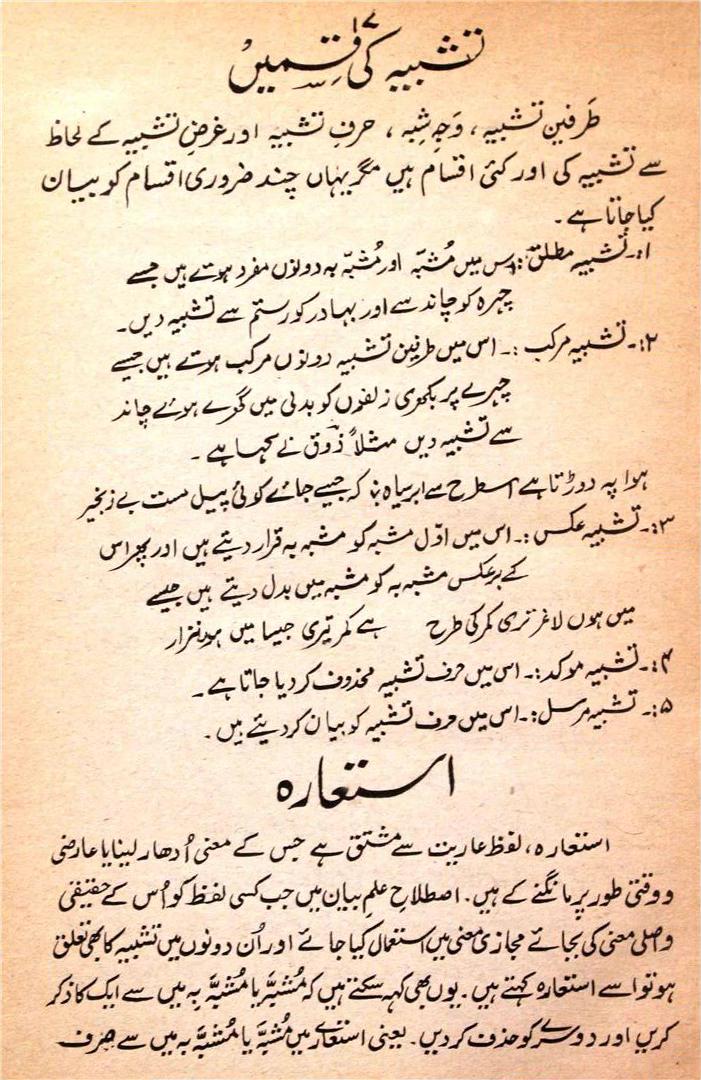 ۱۷
تشبیہ کی قسمیں
طَرفینِ تشبیہ، وَجہِ شِبہ، حرفِ تشبیہ اور غرضِ تشبیہ کے لحاظ
سے تشبیہ کی اور کئی اقسام ہیں مگر یہاں چند ضروری اقسام کو بیان
کیا جاتا ہے۔
۱:۔ تشبیہ مطلق:۔ اس میں مُشبّہ اور مُشبّہ بہ دونوں مفرد ہوتے ہیں جیسے
چہرہ کو چاند سے اور بہادر کو رستم سے تشبیہ دیں۔
۲:۔ تشبیہ مرکب:۔ اس میں طرفینِ تشبیہ دونوں مرکب ہوتے ہیں جیسے
چہرے پر بکھری زلفوں کو بدلی میں گھرے ہوئے چاند
سے تشبیہ دیں مثلاً ذوق نے کہا ہے۔
ہوا پہ دوڑتا ہے اسطرح سے ابرِ سیاہ ؛ کہ جیسے جائے کوئی پیل مست بے زنجیر
۳:۔ تشبیہ عکس:۔ اس میں اوّل مشبہ کو مشبہ بہ قرار دیتے ہیں اور پھر اس
کے برعکس مشبہ بہ کو مشبہ میں بدل دیتے ہیں جیسے
میں ہوں لاغر تری کمر کی طرح ہے کمر تیری جیسا میں ہوں نزار
۴:۔ تشبیہ موکد:۔ اس میں حرف تشبیہ محذوف کر دیا جاتا ہے۔
۵:۔ تشبیہ مرسل:۔ اس میں حرف تشبیہ کو بیان کر دیتے ہیں۔
استعارہ
استعارہ، لفظ عاریت سے مشتق ہے جس کے معنی اُدھار لینا یا عارضی
و وقتی طور پر مانگنے کے ہیں۔ اصطلاحِ علمِ بیان میں جب کسی لفظ کو اُس کے حقیقی
و اصلی معنی کی بجائے مجازی معنی میں استعمال کیا جائے اور اُن دونوں میں تشبیہ کا بھی تعلق
ہو تو اسے استعارہ کہتے ہیں۔ یوں بھی کہہ سکتے ہیں کہ مُشبَّہ یا مُشبَّہ بہ میں سے ایک کا ذکر
کریں اور دوسرے کو حذف کر دیں۔ یعنی استعارے میں مُشبَّہ یا مُشبَّہ بہ میں سے صرف